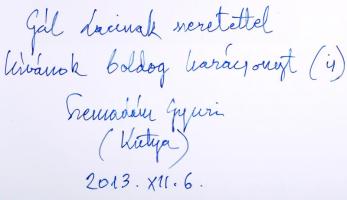 Gál Lacinak szeretettel
kívánok boldog karácsonyt (is)
Szemadám Gyuri
(Kutya)
2013. XII. 6.